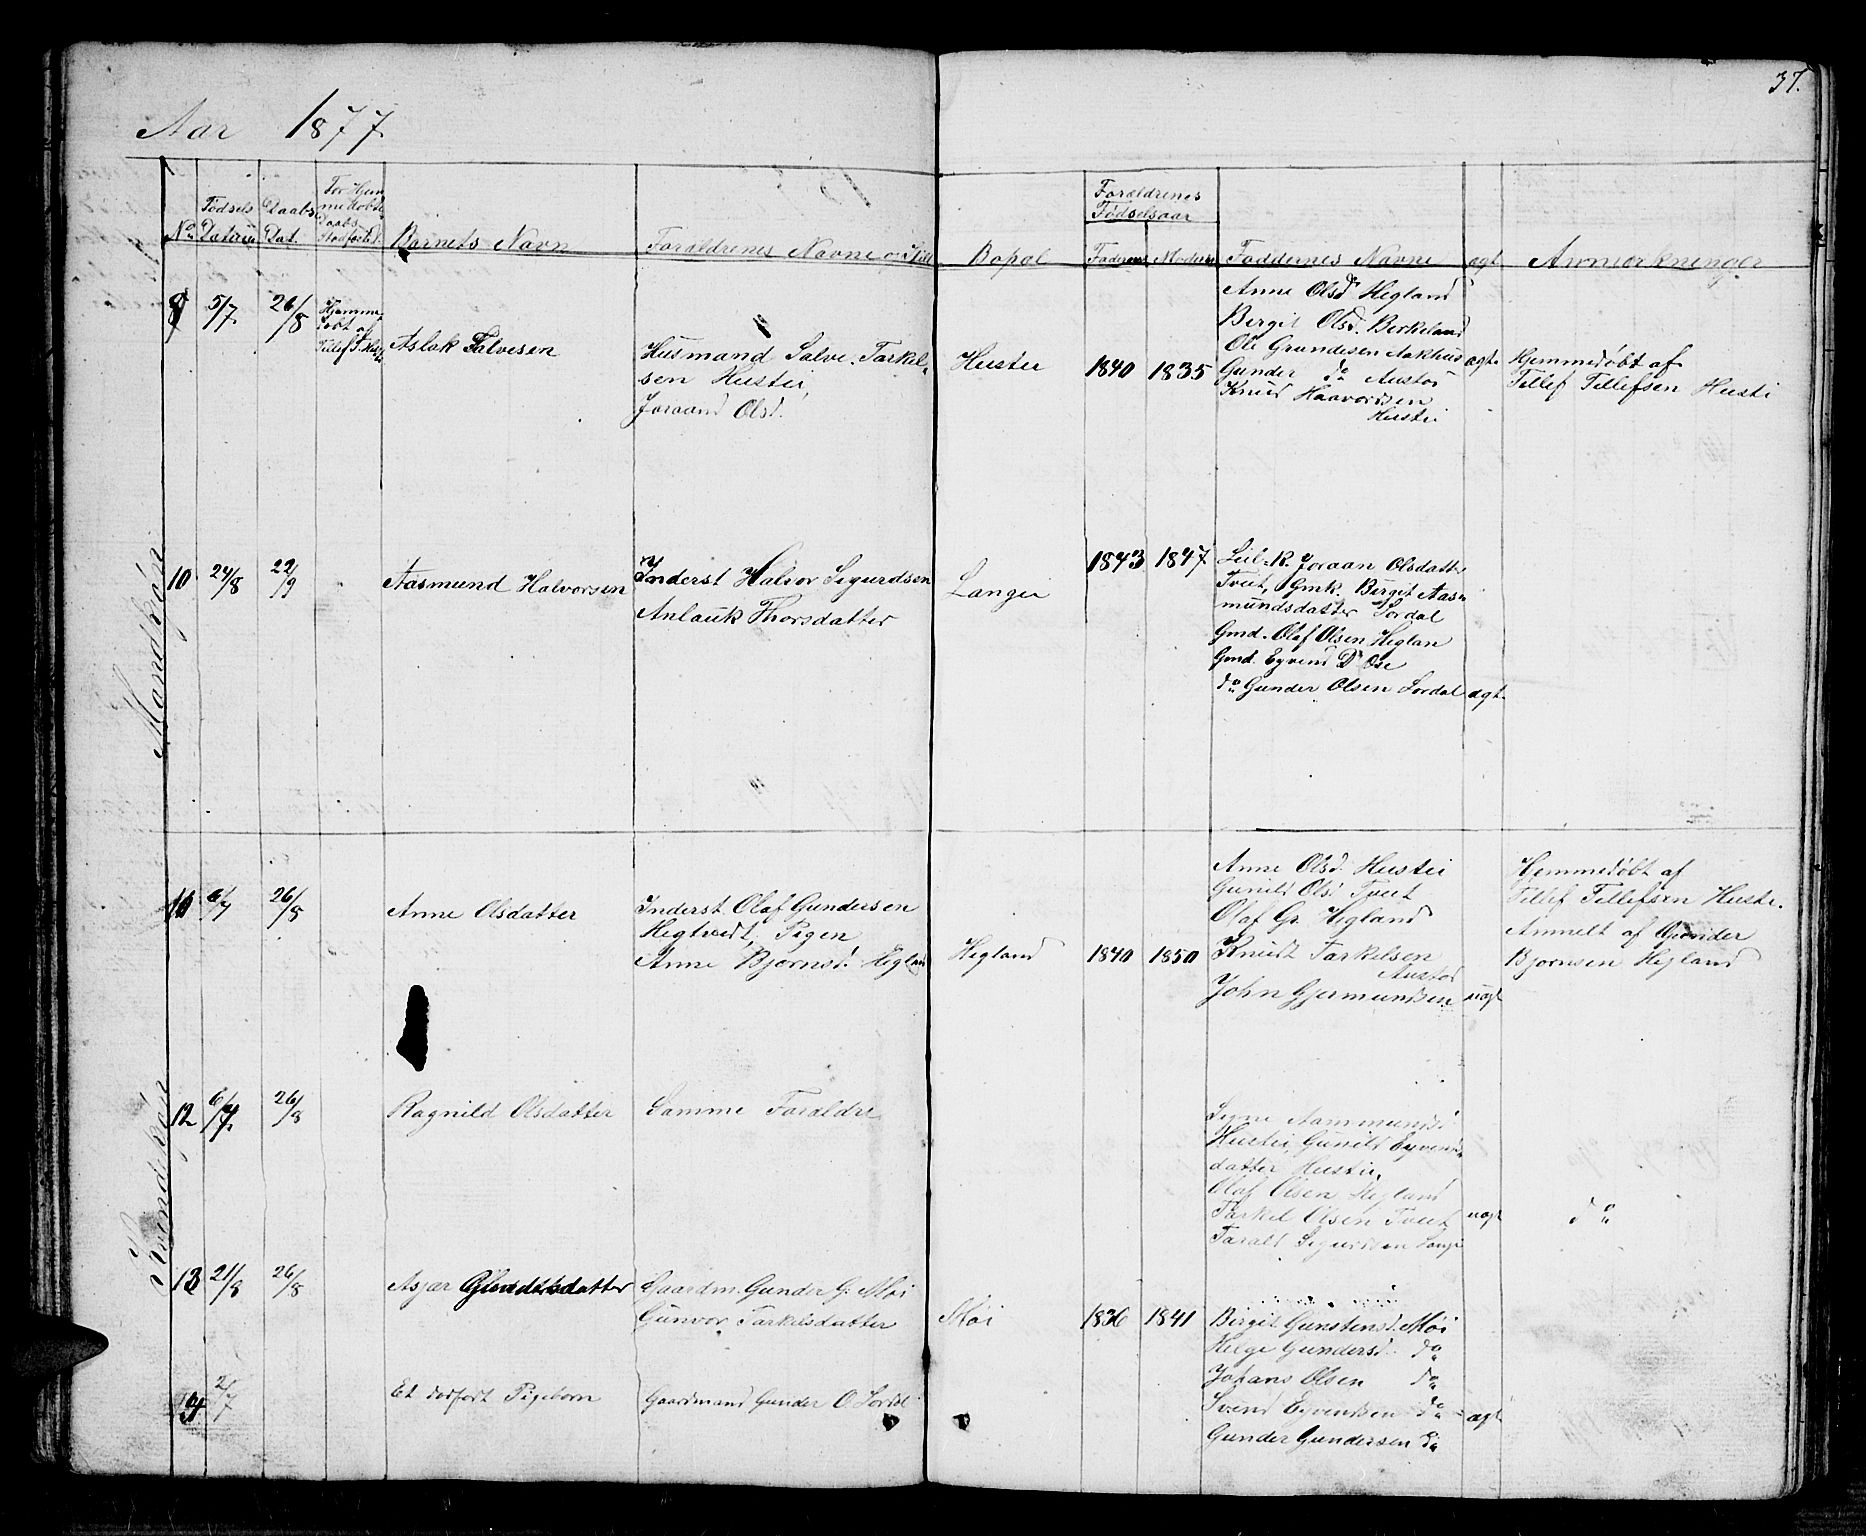 37.
Aar 1877.
Mandkjøn
Kvindekjøn
No Fødsels Datum Daabs Dat. Barnets Navn Forældrenes Navne og Still Bopæl Forældrenes Fødselsaar Faderens Moderens Faddernes Navne ægt Anmærkninger
5/7 26/8 Hjemme
døbt af
Aslak Salvesen
Husmand Salve Tarkel-
sen Hustei
Joraand Olsd.
Hustei
1840 1835
Anne Olsd. Hegland
Bergit Olsd. Berkeland
Ole Grundesen Aakhus
Gunder do Austad
Knud Haavordsen
Hustei
ægt.
Hjemmedøbt af
Tellef Tellefsen Hustei
10 24/8 22/9
Aasmund Halvorsen
Inderst Halvor Sigurdsen
Anlauk Thorsdatter
Langei
1843 1847
Leil. K. Joraan Olsdatter
Tveit, Gmk. Birgit Aas-
mundsdatter Lordal
Gmd. Olaf Olsen Heglan
Gmd. Eyvend Do Ose
do Gunder Olsen Lordal
ægt.
6/7 26/8
Anne Olsdatter
Inderst Olaf Gundersen
Hegtveit, Pigen
Anne Bjørnsd. Hegland
Hegland
1840 1850
Anne Olsd. Hustei
Gunild Olsd. Tveit
Olaf Gr. Hegland
Knudt Tarkelsen
Austad
John Gjermundsen
uægt
Hjemmedøbt af
Tellef Tellefsen Hustei.
Anmelt af Gunder
Bjørnsen Hegland
12 6/7 26/8
Ragnild Olsdatter
Samme Forældre
Signe Aammundsd
Hustei, Gunild Eyvends-
datter Hustei,
Olaf Olsen Hegland
Tarkel Olsen Tveit
Tarald Sigurdsen Langei
uægt
do
13 21/8 26/8
Asjær Gundersdatter
Gaardm. Gunder G. Møi
Gunvor Tarkelsdatter
Møi
1836 1841
Birgit Gunstensd. Møi
Helge Gundersd. do
Johans Olsen do
Svend Eyvendsen do
Gunder Gundersen do
ægt
14 2/7
Et dødfødt Pigebarn
Gaardmand Gunder O. Lordal